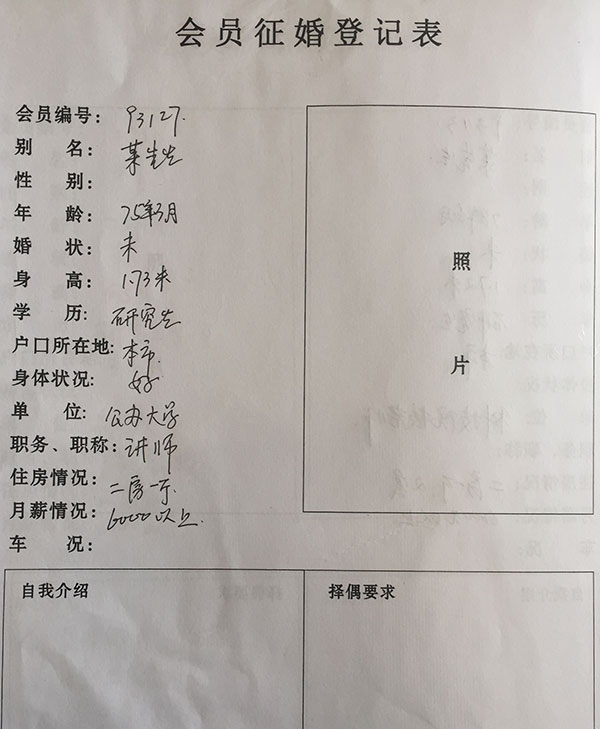 会员征婚登记表
会员编号： 93127.
别 名： 某先生
性 别：
年 龄： 75年3月
婚 状： 未
身 高： 1.73米
学 历： 研究生
户口所在地： 本市.
身体状况： 好
单 位： 公办大学
职务、职称： 讲师
住房情况： 二房一厅.
月薪情况： 6000以上.
车 况：
照
片
自我介绍
择偶要求